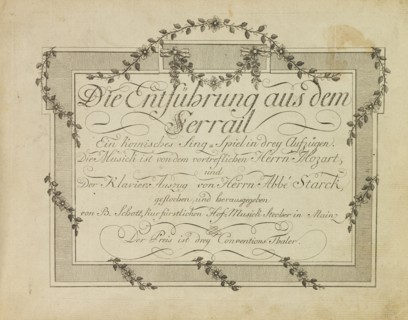 Die Entführung aus dem
Serrail
Ein komisches Sing-Spiel in drey Aufzügen.
Die Musick ist von dem vortreflichen Herrn Mozart,
und
Der Klavier-Auszug von Herrn Abbé Starck,
gestochen und herausgegeben
von B. Schott, Kurfürstlichen Hof Musick Stecher in Mainz
Der Preis ist drey Conventions Thaler